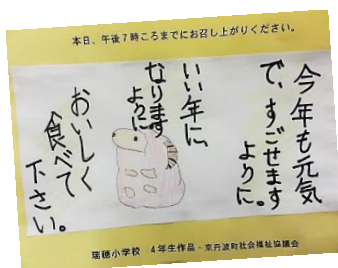 本日、午後7時ころまでにお召し上がりください。
今年も元気
で、すごせます
ように。
いい年に、
なります
ように
おいしく
食べて
下さい。
瑞穂小学校 4年生作品・京丹波町社会福祉協議会